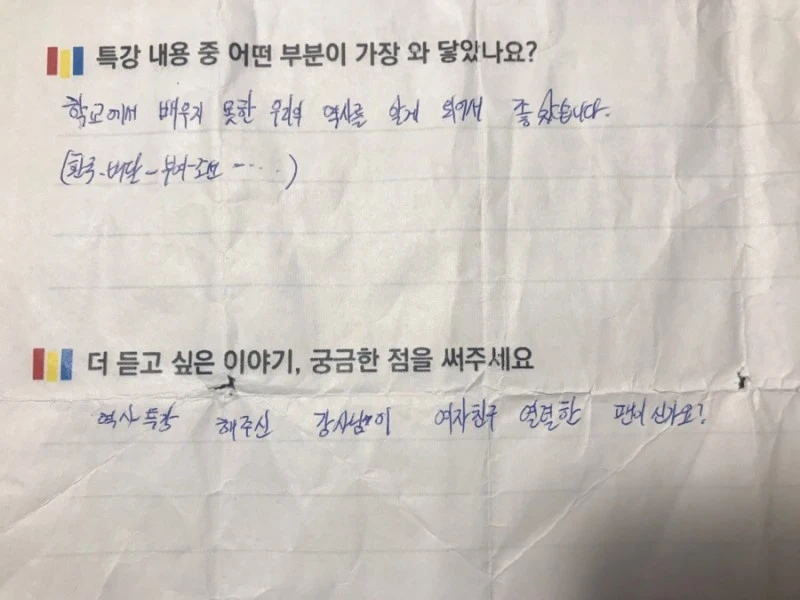 특강 내용 중 어떤 부분이 가장 와 닿았나요?
학교에서 배우지 못한 우리의 역사를 알게 되어서 좋았습니다.
(환국-배달-부여-고
더 듣고 싶은 이야기, 궁금한 점을 써주세요
역사특강 해주신 강사님이 여자친구 열렬한 팬이신가요?